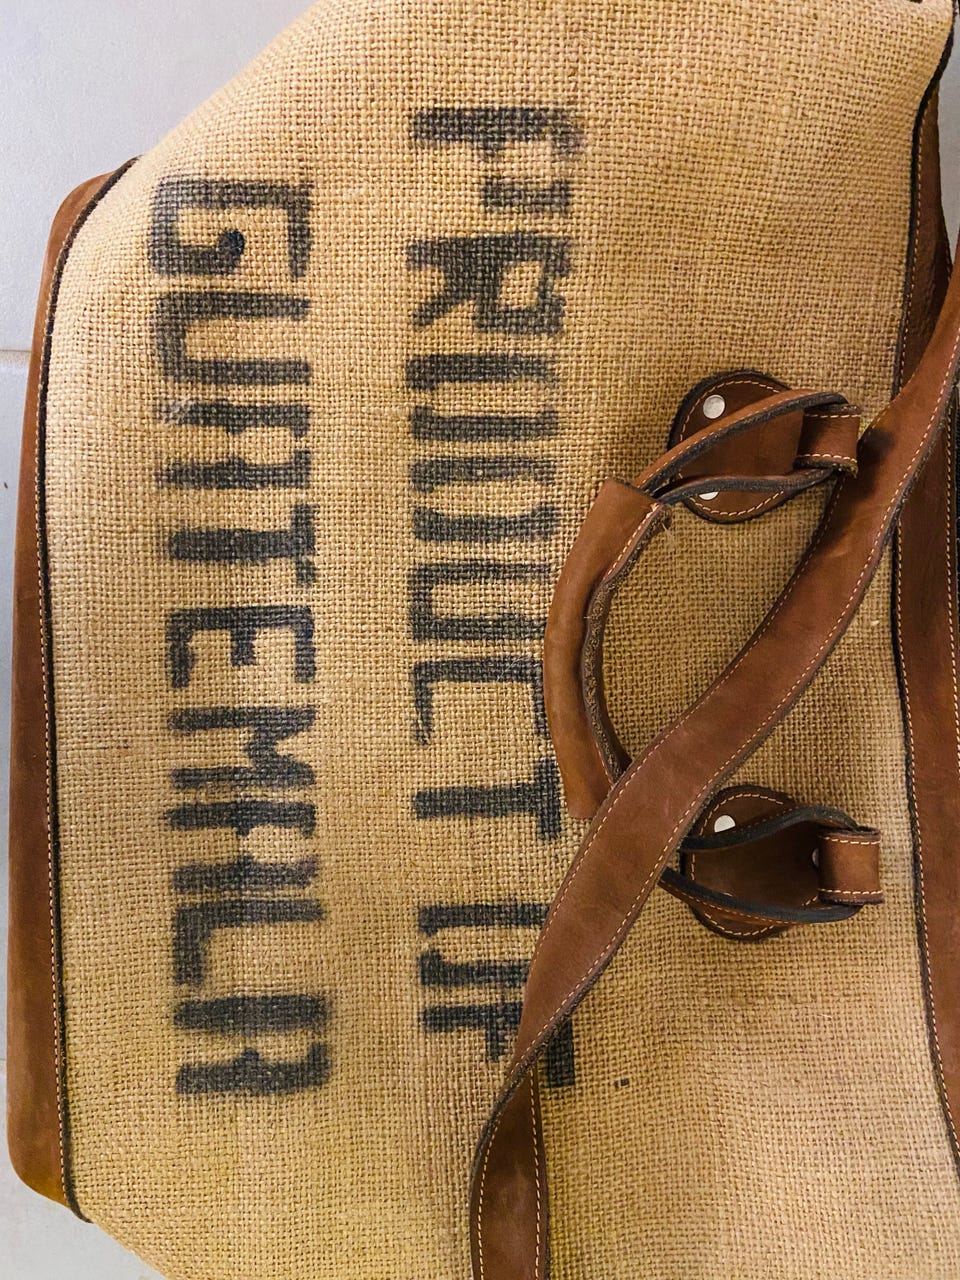 PRODUCT OF
GUATEMALA